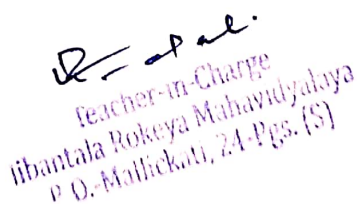 Teacher-in-Charge
Jibantala Rokeya Mahavidyalaya
P.O.-Mallickati, 24-Pgs. (S)